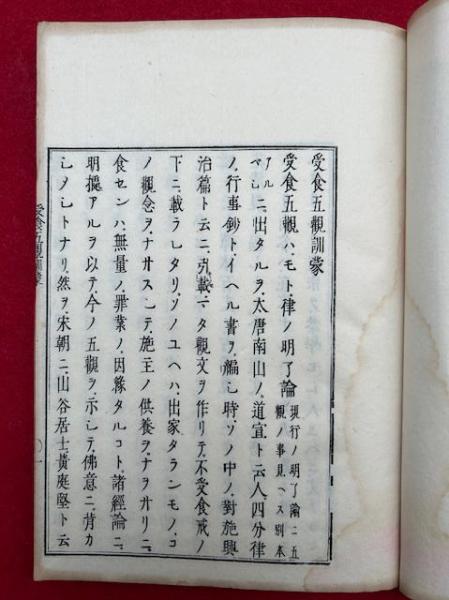 受食五觀訓蒙
受食五觀ハ、モト、律ノ明了論 現行ノ明了論ニ五觀ノ事見ヘス別本アル
ベシニ、出タルヲ、太唐南山ノ、道宣ト云人、四分律
ノ、行事鈔ト、イヘル書ヲ、編シ時、ソノ中ノ、對施興
治篇ト云ニ、引載、マタ觀文ヲ作リテ、不受食戒ノ
下ニ、載ラレタリ、ソノユヘハ、出家タランモノ、コ
ノ觀念ヲ、ナサスシテ、施主ノ供養ヲ、ナヲサリニ、
食センハ、無量ノ、罪業ノ、因縁タルコト、諸經論ニ、
明據アルヲ以テ、今ノ五觀ヲ、示シテ、佛意ニ、背カ
シメシトナリ、然ヲ、宋朝ニ、山谷居士、黄庭堅ト云
受食五觀訓蒙
〇一